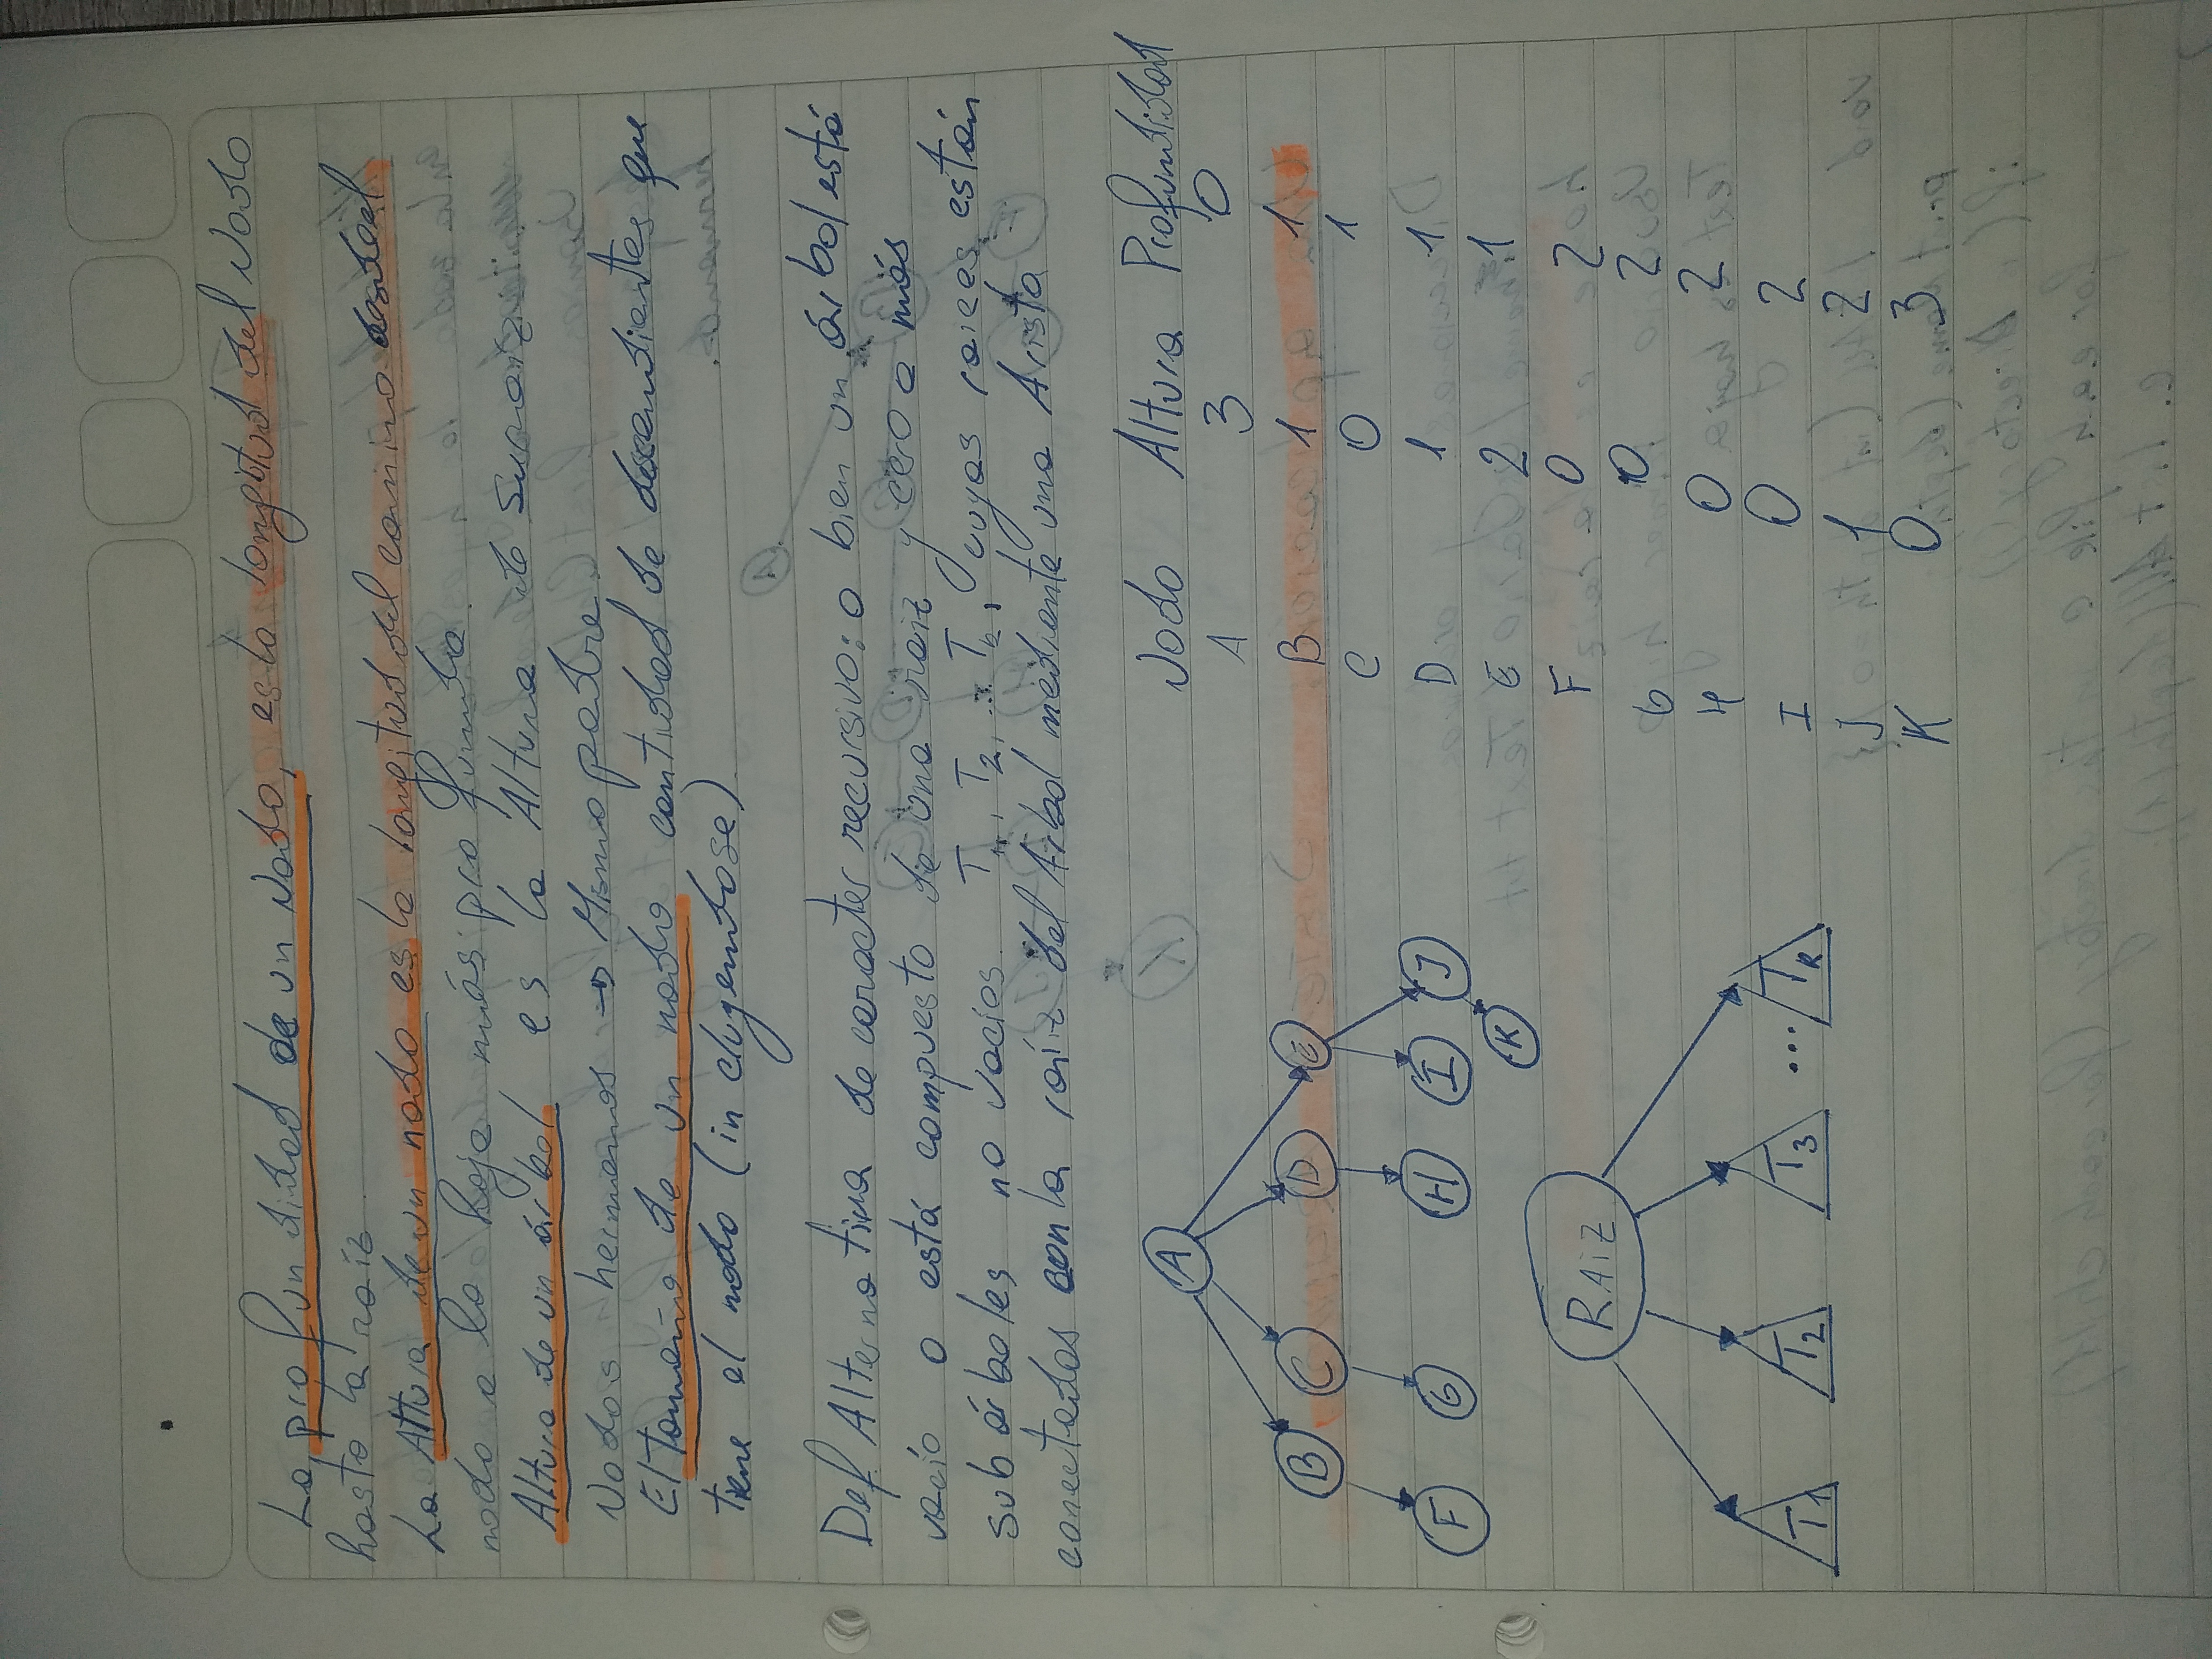 La profundidad de un Nodo, es la longitud del Nodo
hasta la raíz.
La Altura de un nodo es la longitud del camino desde el
nodo a la hoja más profunda.
Altura de un árbol es la Altura de su raiz.
Nodos hermanos → Mismo padre.
El tamaño de un nodo cantidad de descendientes que
tiene el nodo (incluyendose).
Def Alternativa de caracter recursivo: o bien un árbol está
vacío o está compuesto de una raiz y cero o más
subárboles no vacíos. T1, T2, ... Tk, cuyas raices están
conectados con la raíz del árbol mediante una Arista
A
B C D E
F G H I J
K
RAIZ
T1 T2 T3 ... Tk
Nodo Altura Profundidad
A 3 0
B 1 1
C 0 1
D 1 1
E 2 1
F 0 2
G 0 2
H 0 2
I 0 2
J 1 2
K 0 3